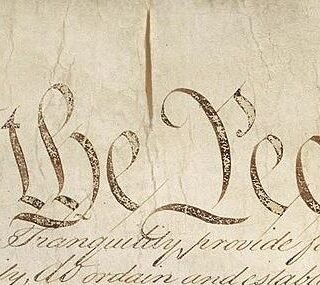 the Peo
Tranquility, provide fo
ity, do ordain and establ